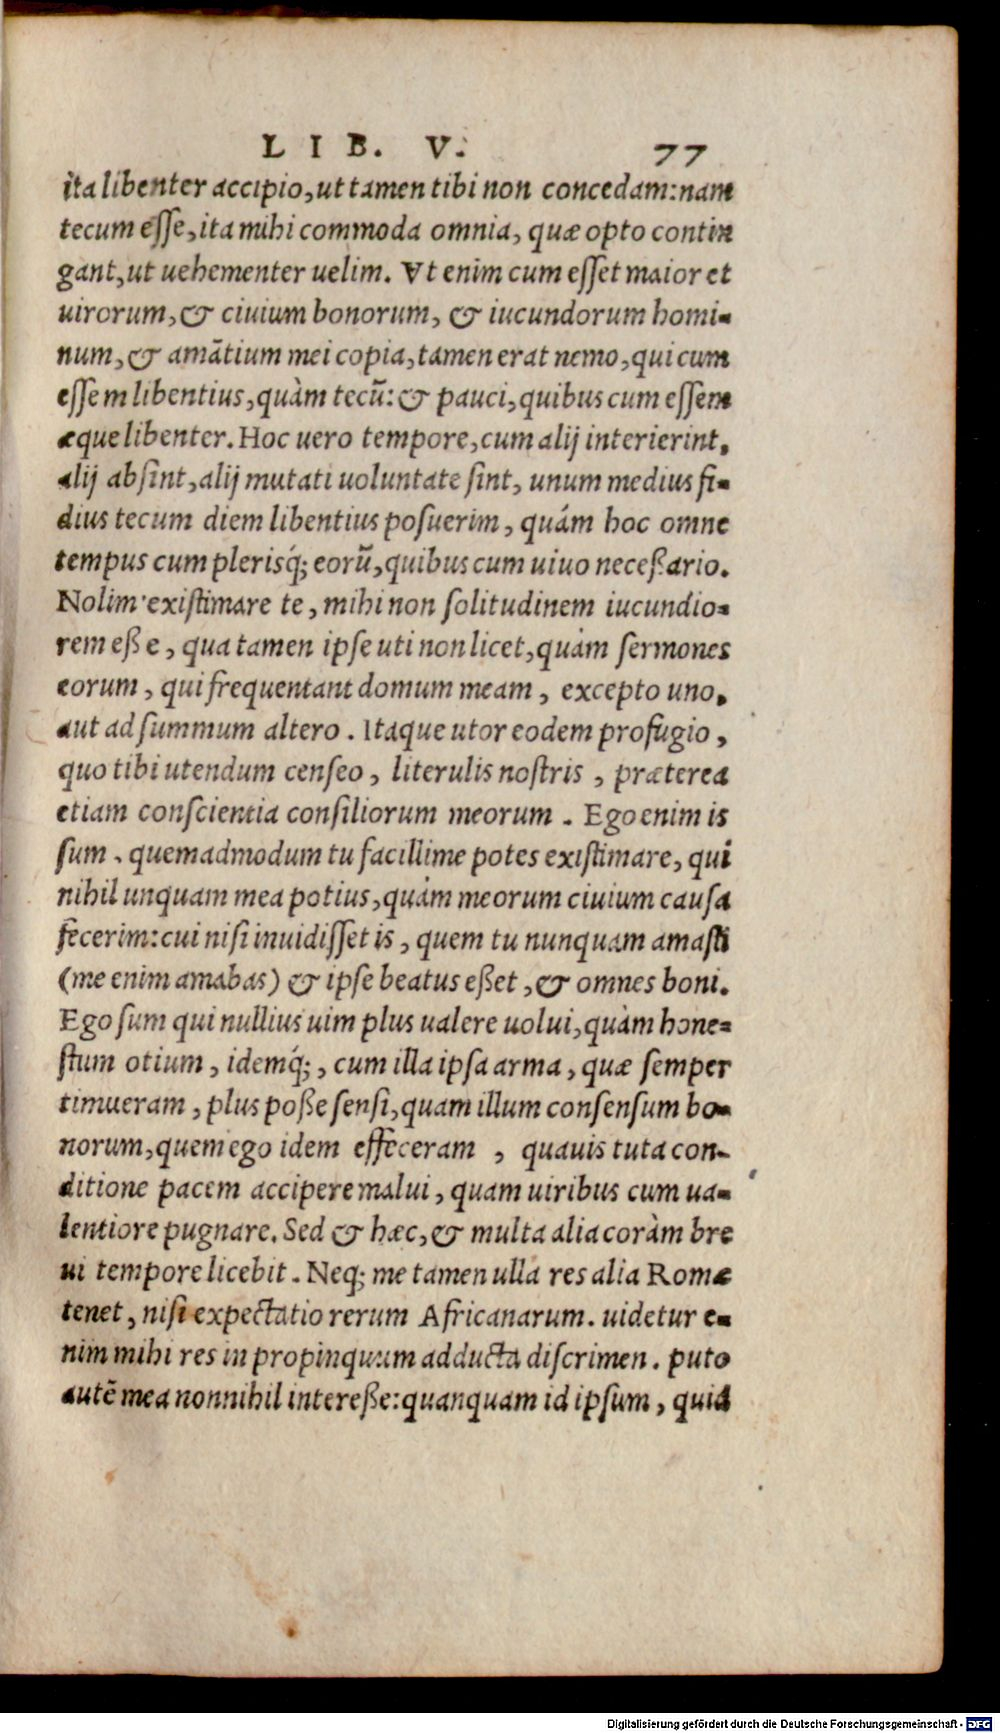 LIB. V. 77
ita libenter accipio, ut tamen tibi non concedam: nam
tecum eſſe, ita mihi commoda omnia, quæ opto contin
gant, ut uehementer uelim. Vt enim cum eſſet maior et
uirorum, & ciuium bonorum, & iucundorum homi-
num, & amātium mei copia, tamen erat nemo, qui cum
eſſem libentius, quàm tecū: & pauci, quibus cum eſſem
æque libenter. Hoc uero tempore, cum alij interierint,
alij abſint, alij mutati uoluntate ſint, unum medius fi-
dius tecum diem libentius poſuerim, quám hoc omne
tempus cum pleriſq́; eorū, quibus cum uiuo neceßario.
Nolim existimare te, mihi non ſolitudinem iucundio-
rem eße, qua tamen ipſe uti non licet, quàm ſermones
eorum, qui frequentant domum meam, excepto uno,
aut ad ſummum altero. Itaque utor eodem profugio,
quo tibi utendum cenſeo, literulis noſtris, præterea
etiam conſcientia conſiliorum meorum. Ego enim is
ſum, quemadmodum tu facillime potes existimare, qui
nihil unquam mea potius, quàm meorum ciuium cauſa
fecerim: cui niſi inuidiſſet is, quem tu nunquam amaſti
(me enim amabas) & ipſe beatus eßet, & omnes boni.
Ego ſum qui nullius uim plus ualere uolui, quàm hone-
ſtum otium, idemq́;, cum illa ipſa arma, quæ ſemper
timueram, plus poße ſenſi, quam illum conſenſum bo-
norum, quem ego idem effeceram, quauis tuta con-
ditione pacem accipere malui, quam uiribus cum ua-
lentiore pugnare. Sed & hæc, & multa alia coràm bre
ui tempore licebit. Neq; me tamen ulla res alia Romæ
tenet, niſi expectatio rerum Africanarum. uidetur e-
nim mihi res in propinquum adducta diſcrimen. puto
autē mea nonnihil intereße: quanquam id ipſum, quid
Digitalisierung gefördert durch die Deutsche Forschungsgemeinschaft - DFG